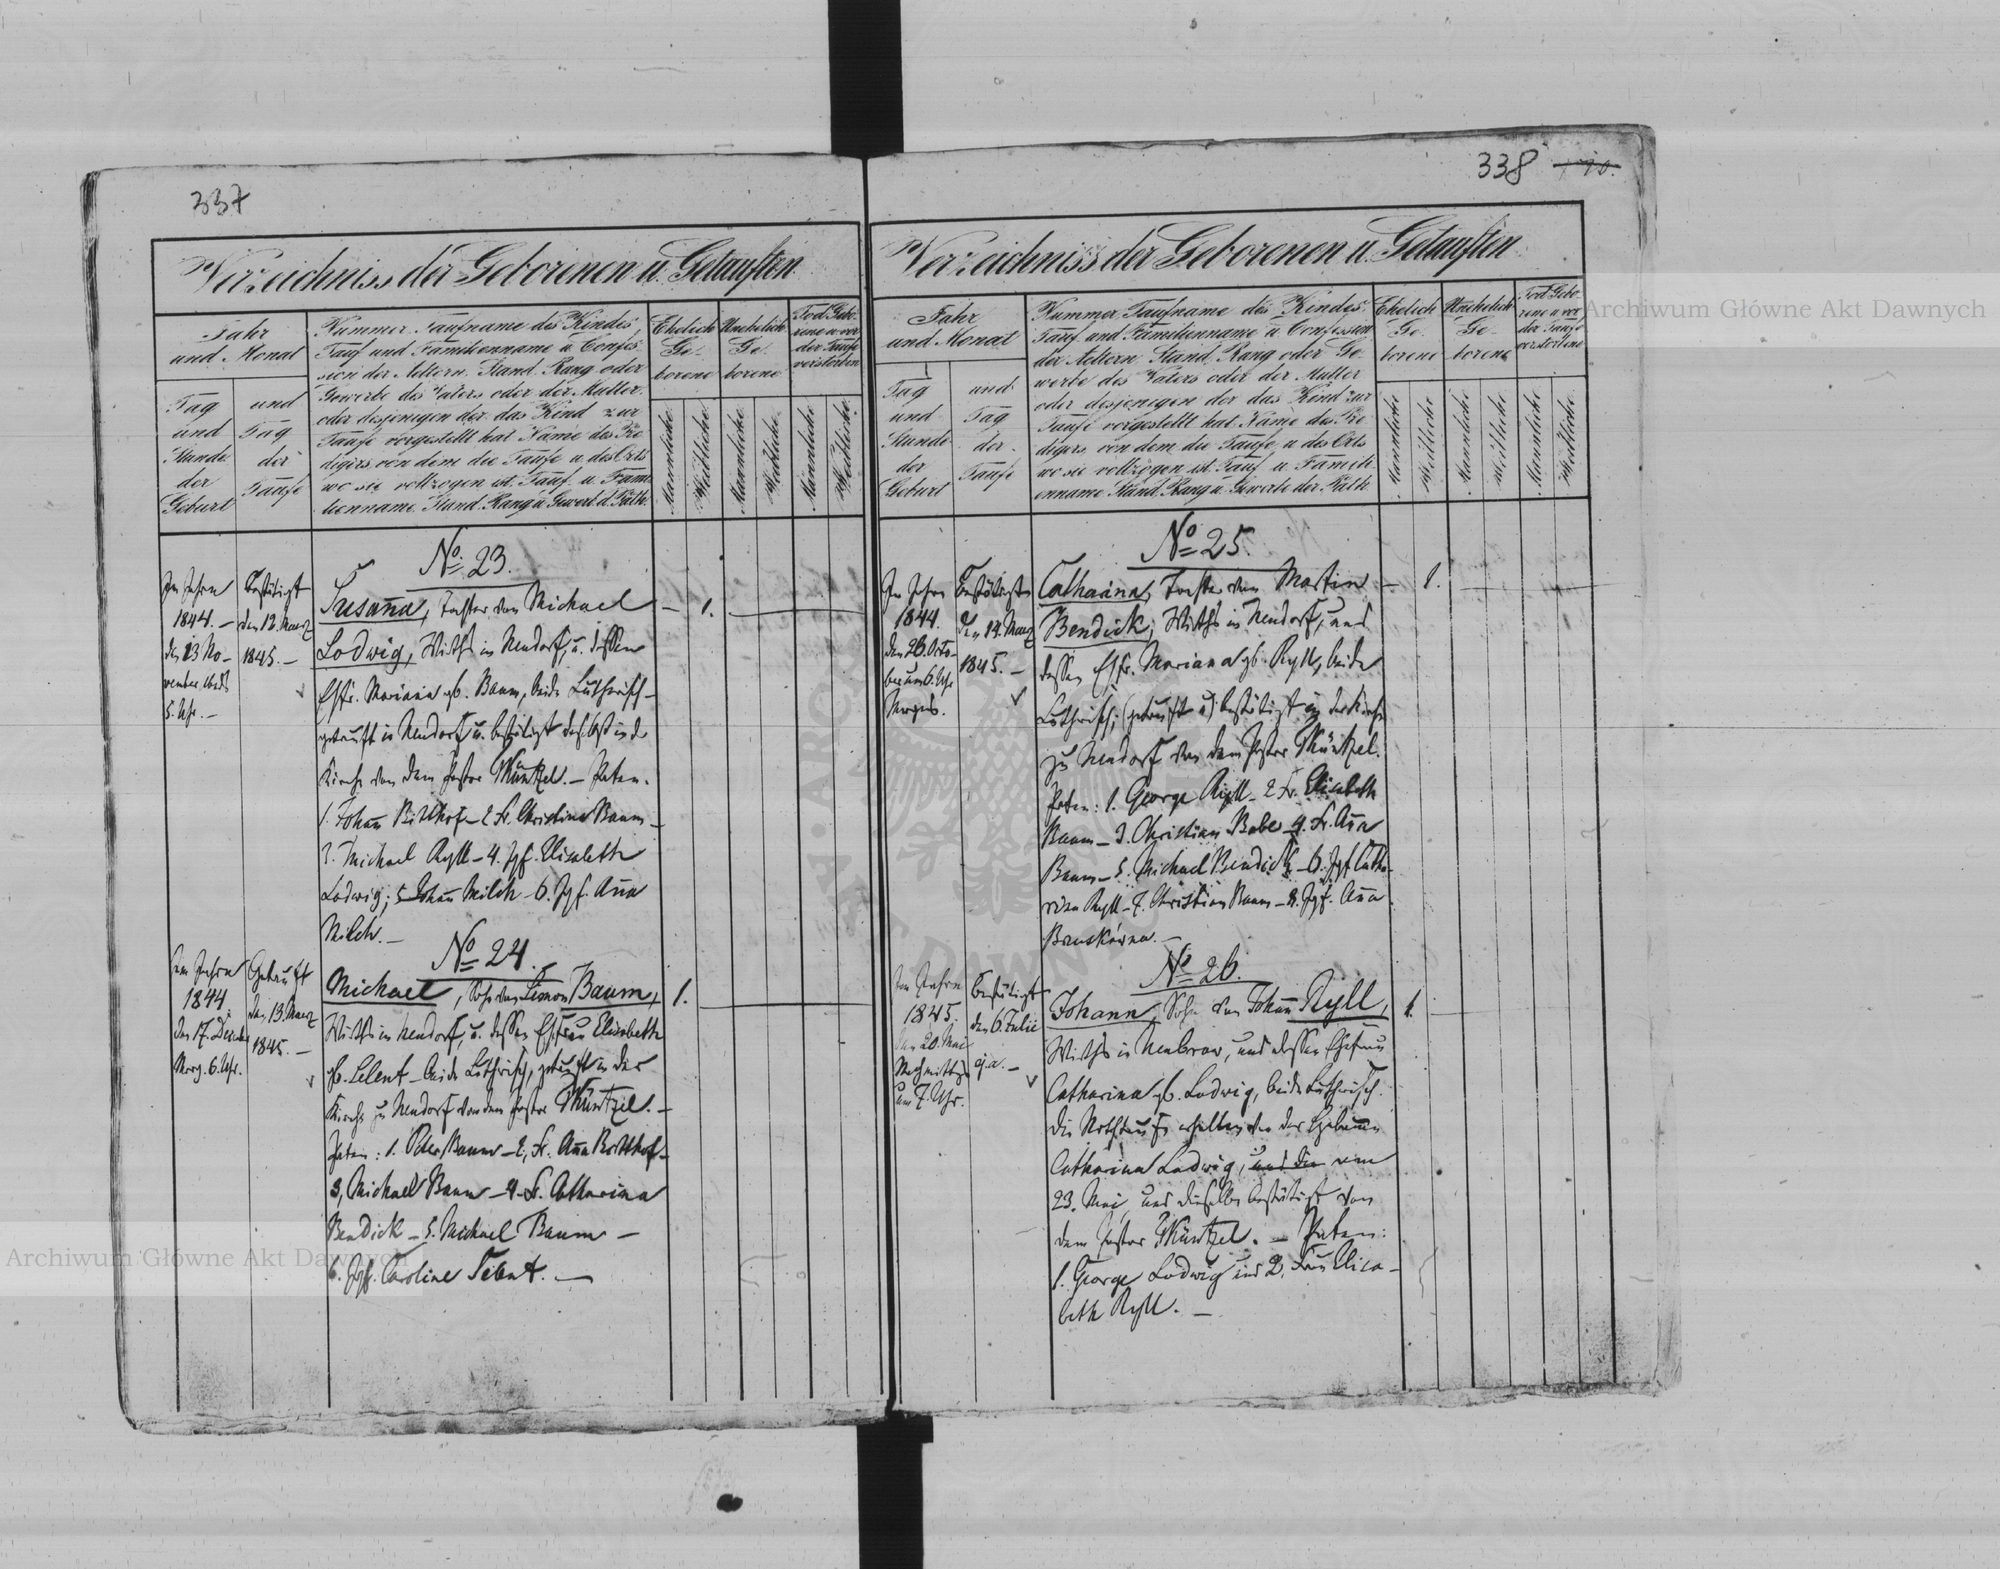 337
Verzeichniss der Geborenen u. Getauften
Jahr
und Monat
Tag
und
Stunde
der
Geburt
und
Tag
der
Taufe
Nummer. Taufname des Kindes,
Tauf und Familienname u. Confes-
sion der Aeltern. Stand. Rang oder
Gewerbe des Vaters oder der Mutter.
oder desjenigen der das Kind zur
Taufe vorgestellt hat Name des Pre
digers von dem die Taufe u. des Orts
wo sie vollzogen ist. Tauf u. Fami
lienname. Stand. Rang u. Gewerb d. Path.
Ehelich
Ge-
borene
Unehelich
Ge.
borene
Tod Gebo-
rene u. vor
der Taufe
verstorben
Mannliche
Weibliche
Mannliche
Weibliche
Mannliche
Weibliche
No 23.
Im Jahre
1844. –
den 23 No-
vember
5. Uhr. –
Bestätigt
den 12. Maerz
1845. –
Susanna, Tochter von Michael
Lodwig, Wirths in Neudorf, u. dessen
Ehfr. Mariana gb. Baum, beide Lutherisch –
getauft in Neudorf u. bestätigt daselbst in d
Kirche von dem Pastor Müntzel. – Paten.
1. Johann Bitthof – 2 Fr. Christina Baum –
3. Michael Ryll – 4. Jgf. Elisabeth
Lodwig; 5 Johann Milch – 6. Jgf. Anna
Milch. –
– 1. –
No 24.
Im Jahre
1844.
den 17. Decembr
Morg. 6. Uhr.
Getauft
den 13. Maerz
1845. –
Michael, Sohn von Simon Baum,
Wirths in Neudorf, u. dessen Ehfrau Elisabeth
gb. Zelent – beide Luthrisch, getauft in der
Kirche zu Neudorf von dem Pastor Müntzel. –
Paten: 1. Peter Baum – 2, Fr. Anna Britthof –
3, Michael Baum – 4. Fr. Catharina
Bendick – 5. Michael Baum –
6. Jgf. Caroline –
1.
338
Verzeichniss der Geborenen u. Getauften
Jahr
und Monat
Tag
und
Stunde
der
Geburt
und
Tag
der
Taufe
Nummer. Taufname des Kindes.
Tauf und Familienname u. Confession
der Aeltern. Stand. Rang oder Ge-
werbe des Vaters oder der Mutter
oder desjenigen der das Kind zur
Taufe vorgestellt hat. Name des Pre
digers von dem die Taufe u. des Orts
wo sie vollzogen ist. Tauf u. Famili-
enname. Stand. Rang u. Gewerbe der Path.
Ehelich
Ge-
borene
Unehelich
Ge-
borene
Tod Gebo-
rene u. vor
der Taufe
verstorbene
Mannliche
Weibliche
Mannliche
Weibliche
Mannliche
Weibliche
No 25.
Im Jahre
1844.
den 28. Octo-
ber um 6. Uhr
Morgens.
Bestätigt
den 14. Maerz
1845. –
Catharina, Tochter von Martin
Bendick, Wirths in Neudorf, und
dessen Ehfr. Mariana gb. Ryll, beide
Luthrisch; (getauft u) bestätigt in der Kirche
zu Neudorf von dem Pastor Müntzel.
Paten: 1. George Ryll – 2 Fr. Elisabeth
Baum – 3. Christian Babe – 4. Fr. Anna
Baum – 5. Michael Bendick – 6. Jgf Catha-
rina Ryll – 7. Christian Baum – 8. Jgf. Anna
– 1. –
No 26.
Im Jahre
1845.
den 20. Mai
Nachmittags
um 7. Uhr.
Bestätigt
den 6. Julie
ej. a. –
Johann, Sohn von Johann Ryll,
Wirths in Neubrow, und dessen Ehefrau
Catharina gb. Lodwig, beide Luthrisch.
Die Nothtaufe erhalten von der Hebamme
Catharina Ludwig, und den vom
23. Mai, und dieselbe bestätigt von
dem Pastor Müntzel. – Paten:
1. George Lodwig und 2. Frau Elisa-
beth Ryll. –
1.
Archiwum Główne Akt Dawnych
Archiwum Główne Akt Dawnych